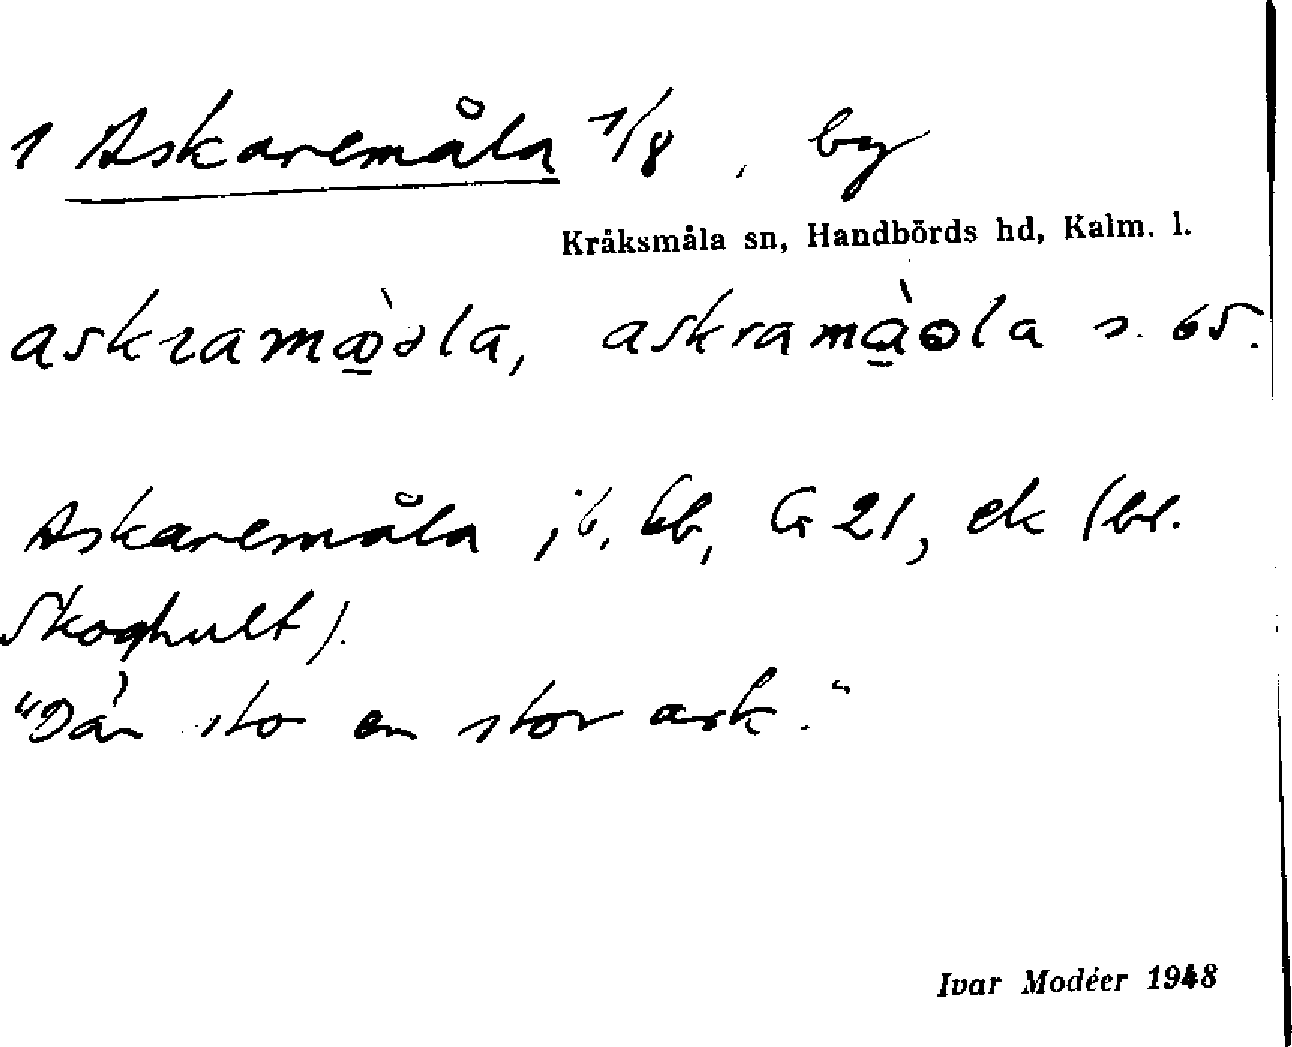 1 Askaremåla 1/8, by
Kråksmåla sn, Handbörds hd, Kalm. l.
askramò̲ɔla, askramà̲ɵla s. 65.
Askaremåla jb, kb, G 21, ek (bl.
Skoghult).
"Där sto en stor ask."
Ivar Modéer 1948